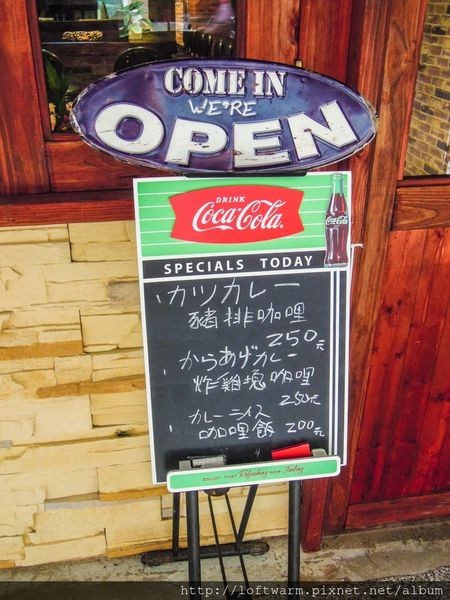 COME IN
WE'RE
OPEN
DRINK
Coca-Cola
Coca-Cola
SPECIALS TODAY
カツカレー
豬排咖哩
250元
からあげカレー
炸雞塊咖哩
250元
カレーライス
咖哩飯 200元
ENJOY THAT Refreshing NEW Feeling
http://loftwarm.pixnet.net/album